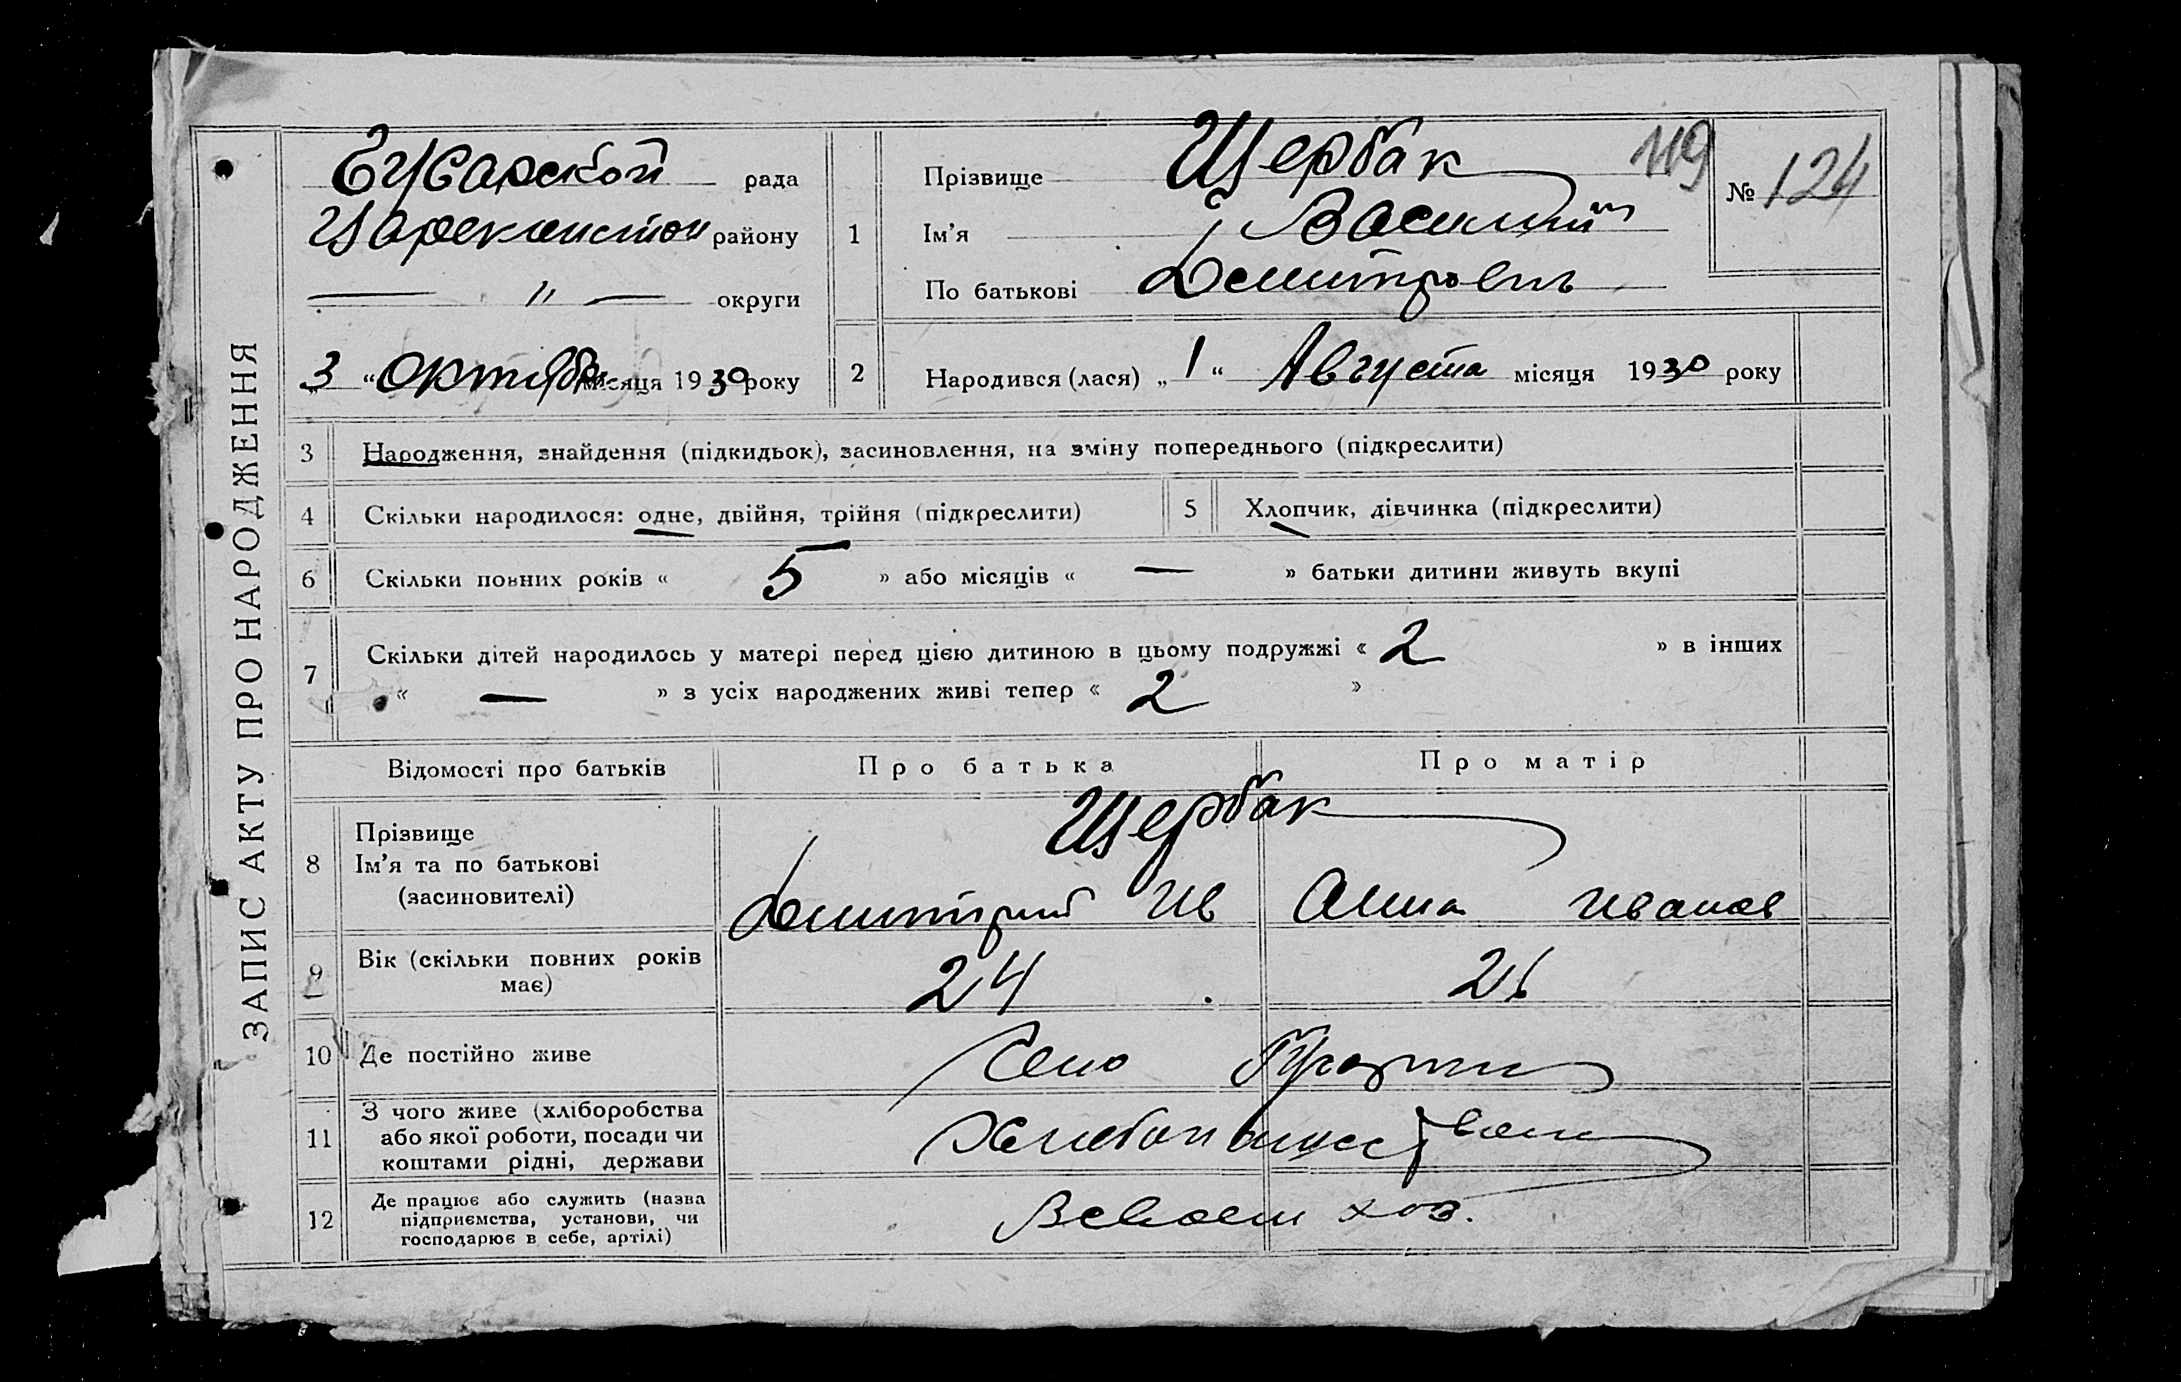 ЗАПИС АКТУ ПРО НАРОДЖЕННЯ
Бузарской рада
району
— " — округи
„3 “ Октября місяця 1930 року
119
№ 124
1
Прізвище Щербак
Ім'я Василий
По батькові Дмитроев
2
Народився (лася) „ 1 “ Августа місяця 1930 року
3 Народження, знайдення (підкидьок), засиновлення, на зміну попереднього (підкреслити)
4 Скільки народилося: одне, двійня, трійня (підкреслити)
5 Хлопчик, дівчинка (підкреслити)
6 Скільки повних років « 5 » або місяців « — » батьки дитини живуть вкупі
7 Скільки дітей народилось у матері перед цією дитиною в цьому подружжі « 2 » в інших
« — » з усіх народжених живі тепер « 2 »
Відомості про батьків
Про батька
Про матір
8 Прізвище
Ім'я та по батькові
(засиновителі)
Щербак
Дмитрий Ив
Анна Иванов
9 Вік (скільки повних років
має)
24
26
10 Де постійно живе
Село
11 З чого живе (хліборобства
або якої роботи, посади чи
коштами рідні, держави
Хлебопашеством
12 Де працює або служить (назва
підприємства, установи, чи
господарює в себе, артілі)
В своем хоз.